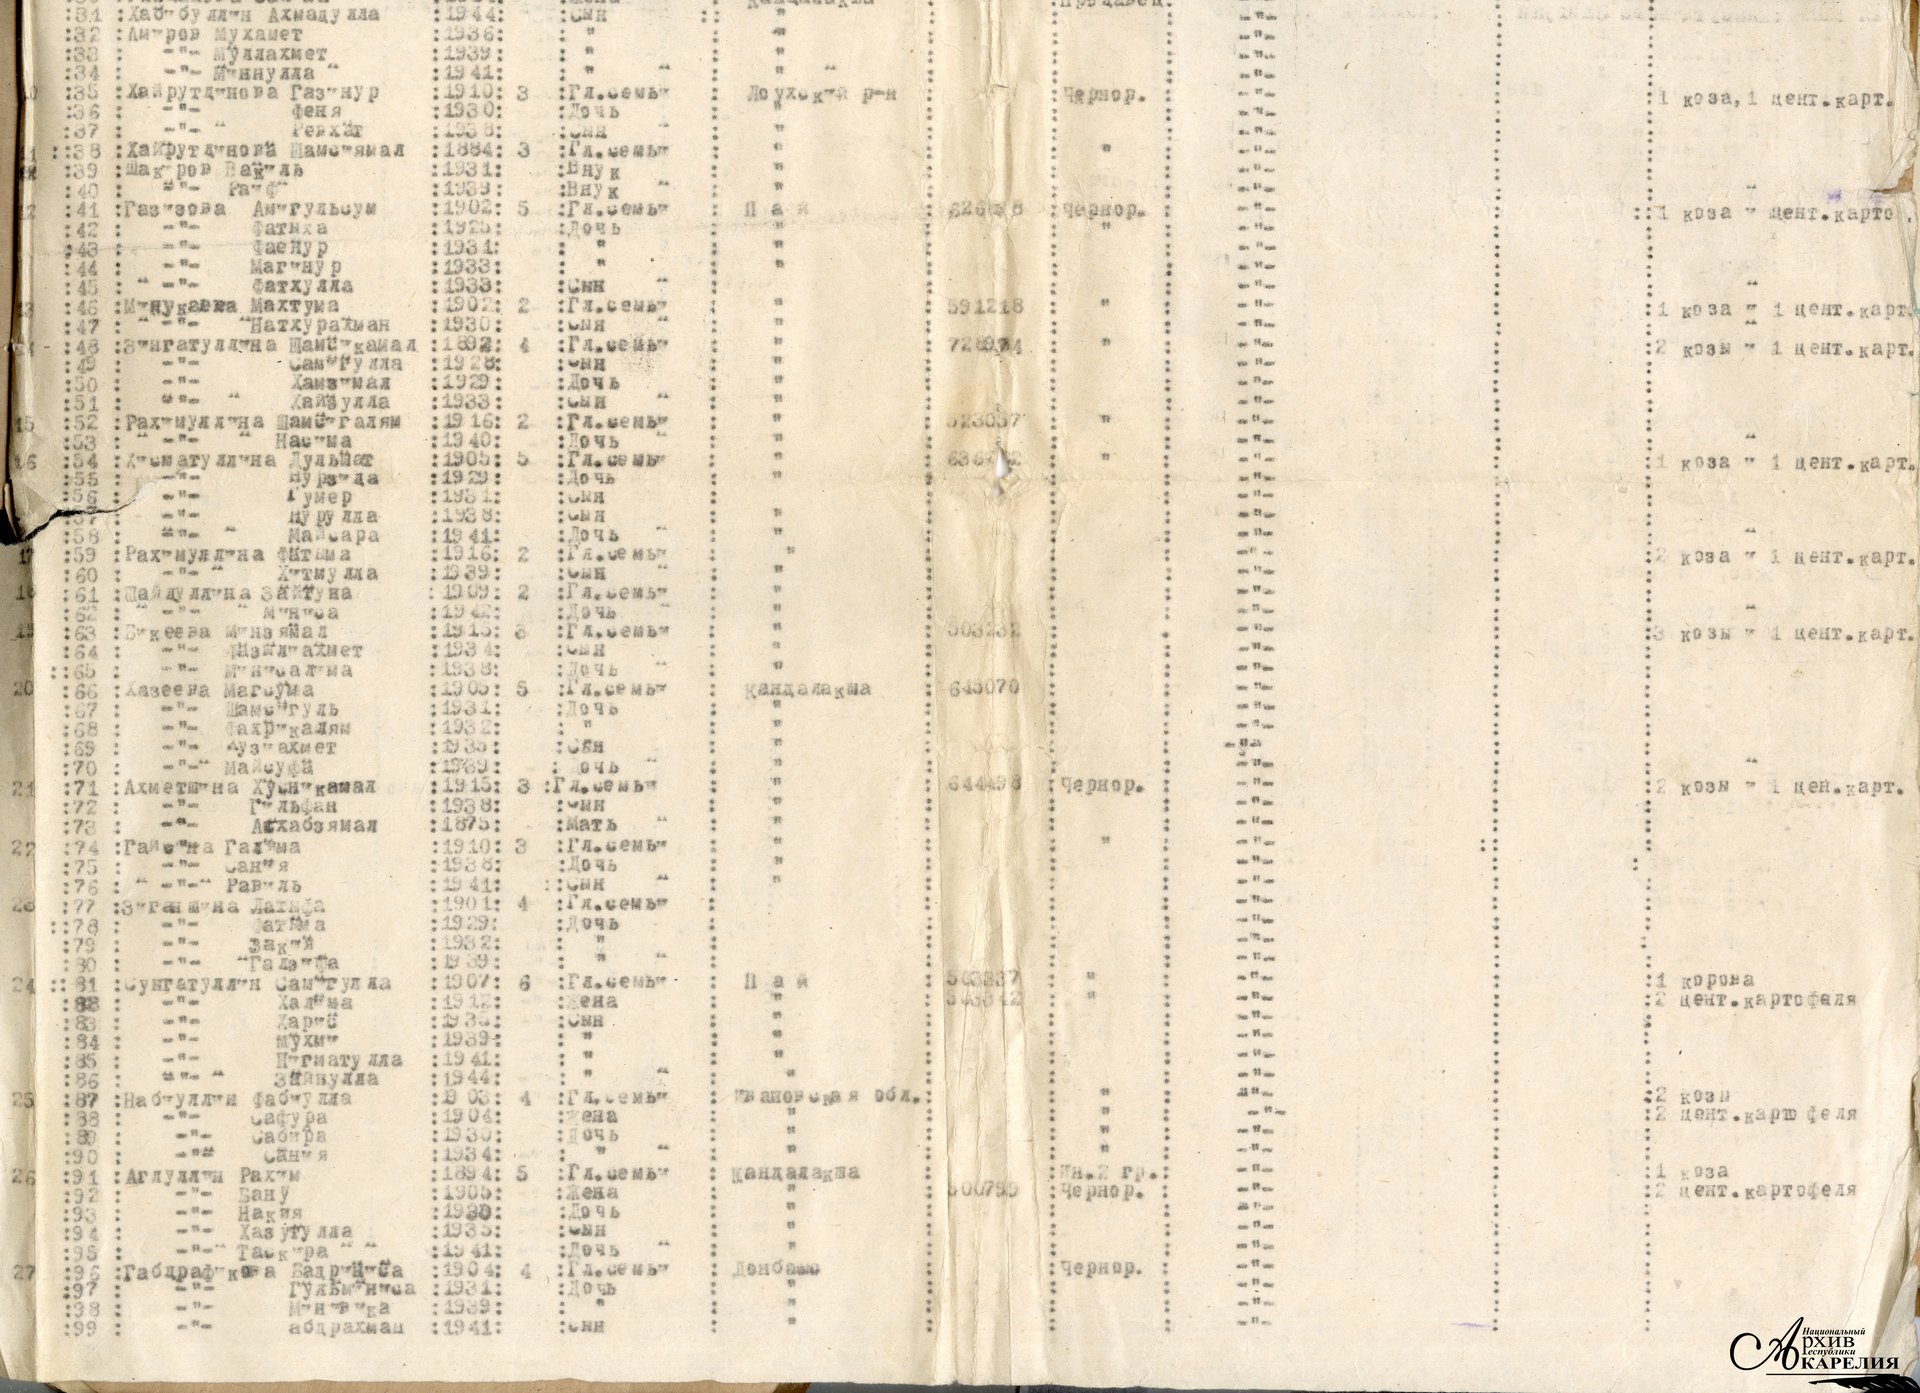 31 Хабибуллин Ахмадулла 1944 Сын "
32 Амиров Мухамет 1936 " "
33 -"- Муллахмет 1939 " " -"-
34 -"- Миннулла 1941 " " -"-
35 Хайрутдинова Газинур 1910 3 Гл.семьи Лоухский р-н Чернор. -"- 1 коза, 1 цент.карт.
36 -"- Феня 1930 Дочь " -"-
37 -"- Ревхат 1938 Сын " -"-
38 Хайрутдинова Шамсиямал 1884 3 Гл.семьи " " -"-
39 Шакиров Вакиль 1931 Внук " -"-
40 -"- Рауф 1939 Внук " -"-
12 41 Газизова Амигульсум 1902 5 Гл.семьи Пай Чернор. -"- 1 коза " цент.карто.
42 -"- Фатиха 1925 Дочь " " -"-
43 -"- Фаенур 1931 " " -"-
44 -"- Магинур 1933 " " -"-
45 -"- Фатхулла 1933 Сын " -"-
13 46 Минукаева Махтума 1902 2 Гл.семьи " 591218 " -"- 1 коза " 1 цент.карт.
47 -"- Натхурахман 1930 Сын " -"-
48 Зингатуллина Шамсикамал 1892 4 Гл.семьи " " -"- 2 козы " 1 цент.карт.
49 -"- Самигулла 1928 Сын " -"-
50 -"- Хамзимал 1929 Дочь " -"-
51 -"- Хайзулла 1933 Сын " -"-
15 52 Рахимуллина Шамсигалям 1916 2 Гл.семьи " 523057 " -"-
53 -"- Насима 1940 Дочь " -"-
16 54 Хисматуллина Дульшат 1905 5 Гл.семьи " " -"- 1 коза " 1 цент.карт.
55 -"- Нурзида 1929 Дочь " -"-
56 -"- Гумер 1931 Сын -"-
57 -"- Нурулла 1938 Сын " -"-
58 -"- Майсара 1941 Дочь " -"-
17 59 Рахимуллина Фатыма 1916 2 Гл.семьи " -"- 2 коза " 1 цент.карт.
60 -"- Хитмулла 1939 Сын " -"-
18 61 Шайдуллина Зайтуна 1909 2 Гл.семьи " -"-
62 -"- Миниса 1942 Дочь " -"-
19 63 Бикеева Минзямал 1915 3 Гл.семьи " 503232 -"- 3 козы " 1 цент.карт.
64 -"- Фазылиахмет 1934 Сын " -"-
65 -"- Минисалима 1938 Дочь " -"-
20 66 Хазеева Магсума 1905 5 Гл.семьи Кандалакша 643070 -"-
67 -"- Шамсигуль 1931 Дочь " -"-
68 -"- Фахрикалям 1932 " " -"-
69 -"- Сын " -"-
70 -"- Майсуфа 1939 Дочь " -"-
21 71 Ахметшина Хусникамал 1915 3 Гл.семьи " 644498 Чернор. -"- 2 козы " 1 цен.карт.
72 -"- Гильфан 1938 Сын " -"-
73 -"- Асхабзямал 1875 Мать " -"-
22 74 Гайсина Галима 1910 3 Гл.семьи " " -"-
75 -"- Сания 1938 Дочь " -"-
76 -"- Равиль 1941 Сын " -"-
23 77 Зиганшина Латыфа 1901 4 Гл.семьи -"-
78 -"- Фатыма 1929 Дочь -"-
79 -"- Закия 1932 " -"-
80 -"- Галзифа 1939 " -"-
24 81 Сунгатуллин Самигулла 1907 6 Гл.семьи Пай " -"- 1 корова
82 -"- Халима 1912 Жена " " -"- 2 цент.картофеля
83 -"- Харис Сын " -"-
84 -"- Мухми 1939 " " -"-
85 -"- Нигматулла 1941 " " -"-
86 -"- Зайнулла 1944 " " -"-
25 87 Набиуллин Фабиулла 4 Гл.семьи Ивановская обл. " -"- 2 козы
88 -"- Сафура 1904 Жена " " -"- 2 цент.картофеля
89 -"- Сабира 1930 Дочь " " -"-
90 -"- Сания 1934 " " " -"-
26 91 Аглуллин Рахим 1894 5 Гл.семьи Кандалакша Ин.2 гр. -"- 1 коза
92 -"- Бану 1905 Жена " Чернор. -"- 2 цент.картофеля
93 -"- Накия 1930 Дочь " -"-
94 -"- Хазутулла 1935 Сын " -"-
95 -"- Таскира 1941 Дочь " -"-
27 96 Габдрафикова Бадриниса 1904 4 Гл.семьи Донбасс Чернор. -"-
97 -"- Гульминиса 1931 Дочь " -"-
98 -"- Минзика 1939 " " -"-
99 -"- Абдрахман 1941 Сын " -"-
Национальный
Архив
Республики
КАРЕЛИЯ